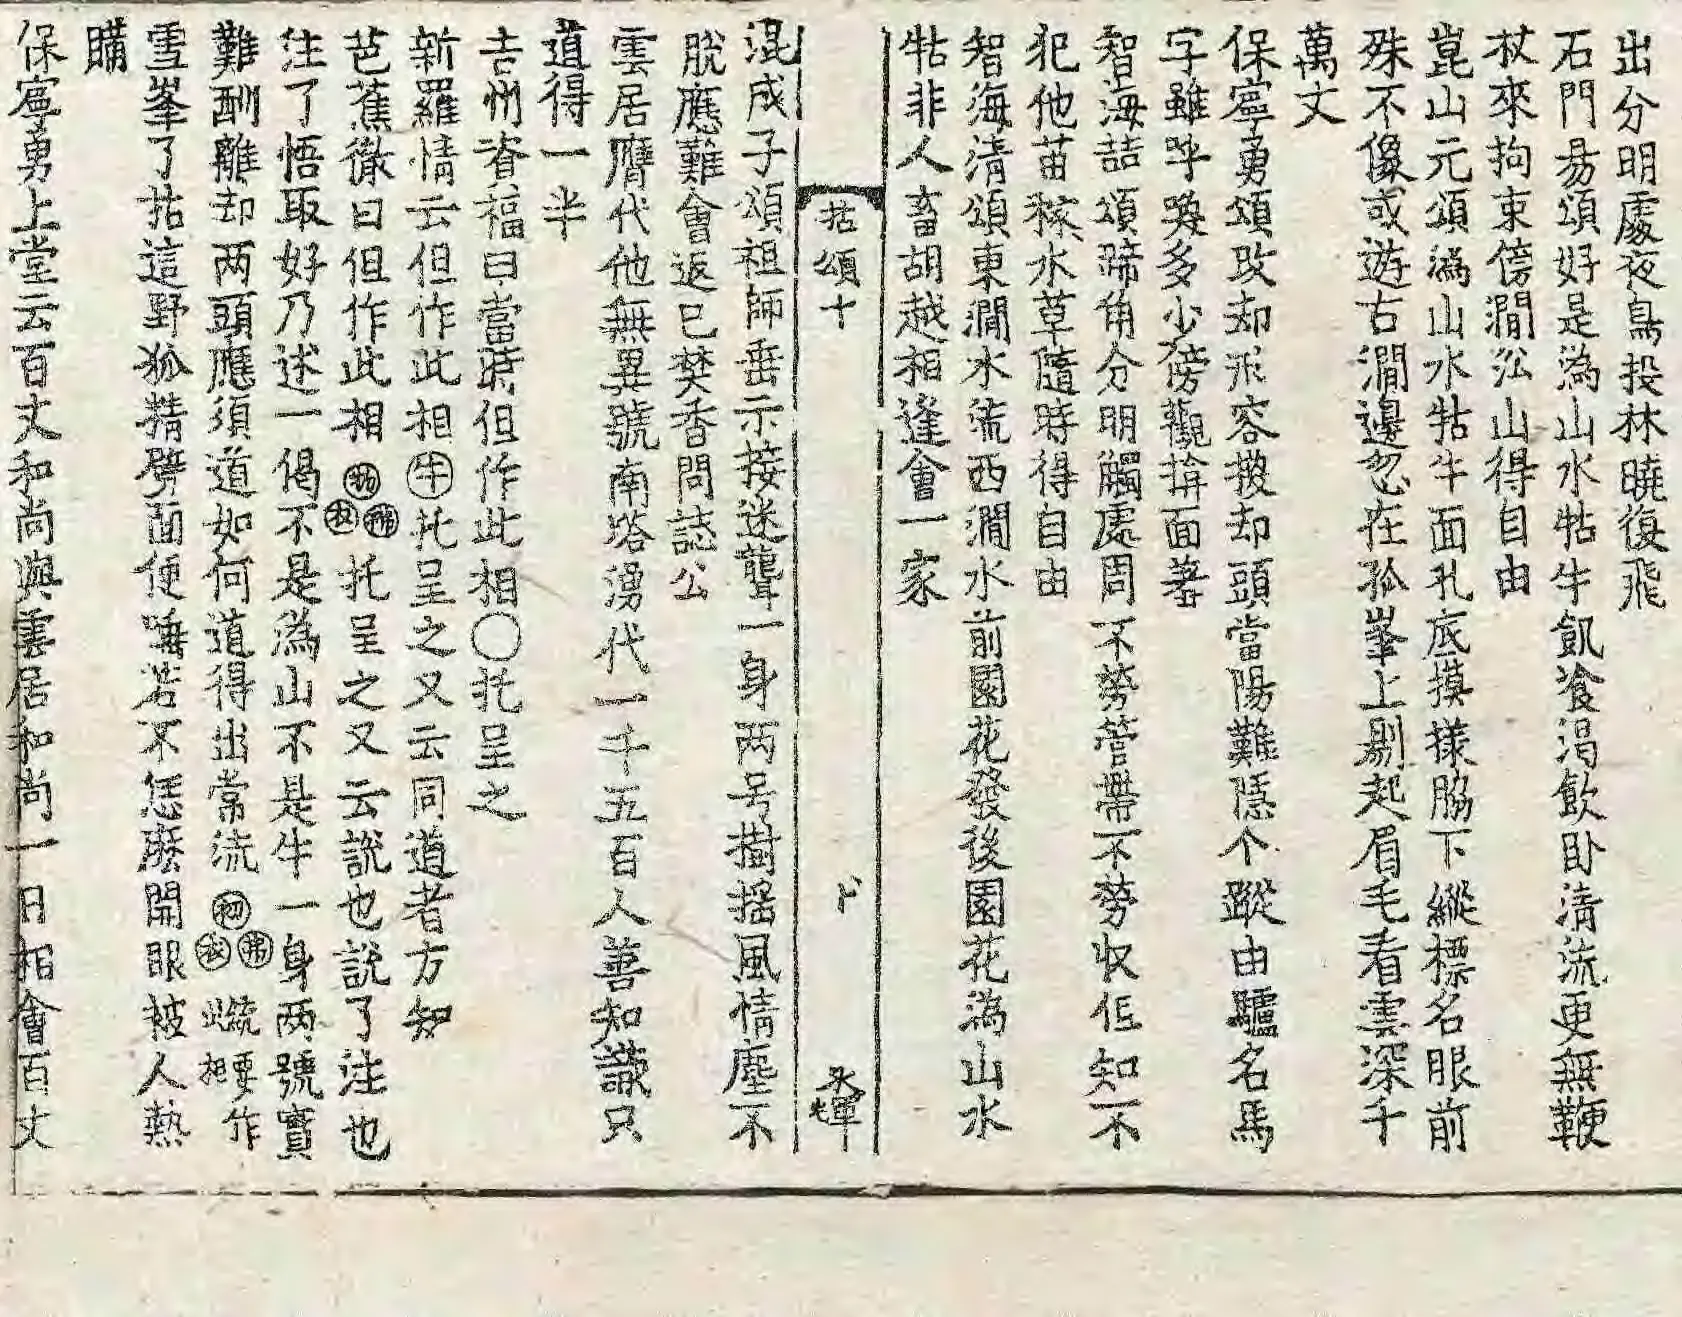 出分明處夜鳥投林曉復飛
石門易頌好是潙山水牯牛飢飡渴飮卧清流更無鞭
杖來拘束傍澗㳂山得自由
崑山元頌潙山水牯牛面孔底摸㨾脇下縱標名眼前
殊不儱或遊古澗邊忽在孤峯上剔起眉毛看雲深千
萬丈
保寧勇頌改却形容換却頭當陽難隱个蹤由驢名馬
字雖呼喚多少傍觀揜面羞
智海喆頌蹄角分明觸處周不勞管帶不勞收但知不
犯他苗稼水草隨時得自由
智海清頌東澗水流西澗水前園花發後園花潙山水
牯非人畜胡越相逢會一家
拈頌十
卜
天輝
混成子頌祖師垂示接迷聾一身两号樹搖風情塵不
脫應難會返已焚香問誌公
雲居膺代他無異號南塔湧代一千五百人善知識只
道得一半
吉州資福曰當時但作此相〇托呈之
新羅情云但作此相㊉牛托呈之又云同道者方知
芭蕉徹曰但作此相 托呈之又云說也說了注也
注了悟取好乃述一偈不是潙山不是牛一身两號實
難酬離却两頭應須道如何道得出常流 此相䟽要作
雪峯了拈這野狐精劈面便唾若不恁麽開眼被人熱
瞞
保寧勇上堂云百丈和尚與雲居和尚一日相會百丈